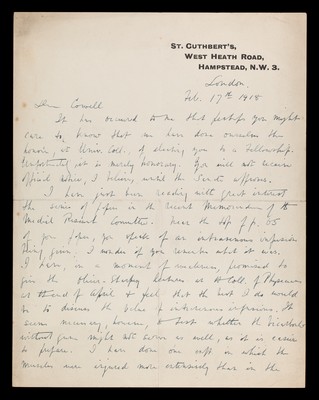 ST. CUTHBERT'S,
WEST HEATH ROAD,
HAMPSTEAD, N.W. 3.
London.
Feb. 17th 1918
Dear Cowell
It has occurred to me that perhaps you might
care to know that we have done ourselves the
honour, at Univ. Coll., of electing you to a Fellowship.
Unfortunately it is merely honorary. You will not receive
official notice, I believe, until the Senate approves.
I have just been reading with great interest
the series of papers in the recent Memorandum of the
Medical Research Committee. Near the top of p. 35
of your paper, you speak of an intravenous infusion
being given. I wonder if you remember what it was.
I have, in a moment of weakness, promised to
give the Oliver-Sharpey Lectures at the Coll. of Physicians
at the end of April & feel that the best I could do would
be to discuss the value of intravenous infusions. It
seems necessary, however, to test whether the bicarbonate
without gum might not serve as well, as it is easier
to prepare. I have done one expt. in which the
muscles were injured more extensively than in the